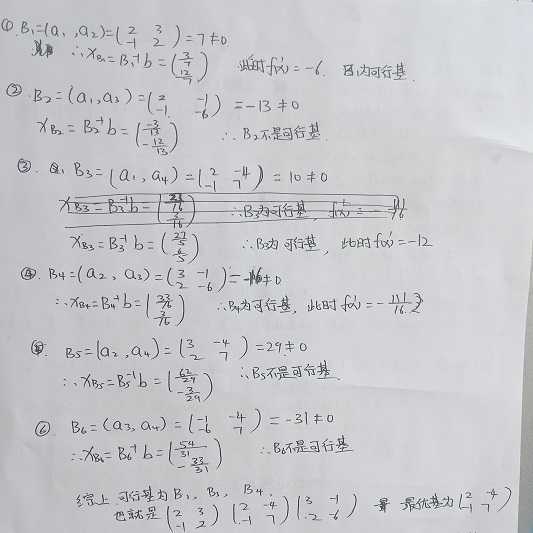 ① B₁=(a₁,a₂)=(2 3 / -1 2)=7≠0
∴x_B₁=B₁⁻¹b=(3/7 / 12/7) 此时f(x)=-6. 因为可行基.
② B₂=(a₁,a₃)=(2 -1 / -1 -6)=-13≠0
x_B₂=B₂⁻¹b=(-3/13 / -12/13) ∴B₂不是可行基.
③. B₃=(a₁,a₄)=(2 -4 / -1 7)=10≠0
x_B₃=B₃⁻¹b= ∴B₃为可行基,
x_B₃=B₃⁻¹b=(27/5 / 6/5) ∴B₃为可行基, 此时f(x)=-12
④. B₄=(a₂,a₃)=(3 -1 / 2 -6)=-16≠0
∴x_B₄=B₄⁻¹b=(33/16 / 3/16) ∴B₄为可行基, 此时f(x)=-111/16
⑤. B₅=(a₂,a₄)=(3 -4 / 2 7)=29≠0
∴x_B₅=B₅⁻¹b=(62/29 / -3/29) ∴B₅不是可行基.
⑥ B₆=(a₃,a₄)=(-1 -4 / -6 7)=-31≠0
∴x_B₆=B₆⁻¹b=(54/31 / -33/31) ∴B₆不是可行基
综上 可行基为B₁, B₃, B₄.
也就是(2 3 / -1 2) (2 -4 / -1 7) (3 -1 / 2 -6) 最优基为(2 -4 / -1 7)